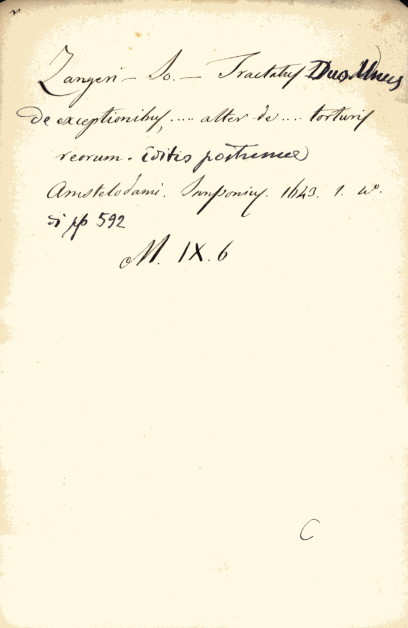 Zangeri - Jo. - Tractatus Duo. Unus
de exceptionibus, .... alter de .... torturis
reorum. Editio postrema
Amstelodami. Sumptibus. 1643. 1. w°.
di pp 592
M. IX. 6
C